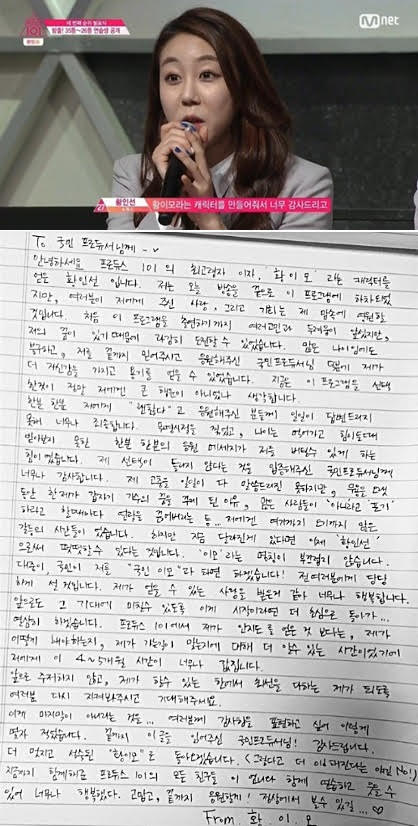 세 번째 순위 발표식
방출! 35등~26등 연습생 공개
101
M net
27
황인선
황이모라는 캐릭터를 만들어줘서 너무 감사드리고
To 국민 프로듀서님께~
안녕하세요 프로듀스 101의 최고령자 이자, '황이모' 라는 캐릭터를
얻은 황인선 입니다. 저는 오늘 방송을 끝으로 이 프로그램에 하차되었
지만, 여러분이 저에게 주신 사랑, 그리고 기회는 제 맘속에 영원할
것입니다. 처음 이 프로그램을 출연하기까지 여러고민과 두려움이 있었지만,
저의 꿈이 있기 때문에 과감히 도전할 수 있었습니다. 많은 나이임에도
불구하고, 저를 끝까지 믿어주시고 응원해주신 국민프로듀서님 덕분에 제가
더 자신감을 가지고 용기를 얻을 수 있었습니다. 지금은 이 프로그램을 선택
한것이 정말 저에겐 큰 행운이 아니었나 생각합니다.
한분 한분 저에게 "팬이다" 고 응원해주신 분들께 일일이 답변드리지
못해 너무나 죄송합니다. 무명시절을 겪었고, 나이는 먹어가고 힘이들때에
알아봐지 못한 한분 한분의 응원 메세지가 저를 버틸수 있게 하는
힘이 였습니다. 제 선택이 틀리지 않다는 것을 입증해주신 국민프로듀서님께
너무나 감사합니다. 제 고충을 일일이 다 말씀드리진 못하지만, 몇년
동안 한제가 갑자기 가수의 꿈을 꾸게 된 이유, 많은 사람들이 "아니라고 포기"
하라고 할때마다 연락을 끊어버리는 등... 저에겐 여기까지 오기까지 많은
갈등의 시간들이 있습니다. 하지만 지금 달라진게 있다면 이제 '황인선'
으로써 떳떳할수 있다는 것입니다. '이모'라는 명칭이 부끄럽지 않습니다.
대중이, 국민이 저를 "국민 이모"라 하면 하겠습니다! 전여러분에게 당당
하게 선 것입니다. 제가 얻을 수 있는 사랑을 받은것 같아 너무나 행복합니다.
앞으로도 그 기대에 미칠수 있도록 이제 시작이라면 더 초심으로 돌아가...
열심히 하겠습니다. 프로듀스 101에서 제가 인지도를 얻은 것 보다는, 제가
어떻게 해야하는지, 제가 가는길이 맞는지에 대해 더 알수 있는 시간이었기에
저에게 이 4~5개월 시간이 너무나 값집니다.
앞으로 주저하지 않고, 제가 할수 있는 한에서 최선을 다하는 제가 되도록
여러분 다시 지켜봐주시고 기대해주세요.
이게 마지막이 아니라는 것을... 여러분께 감사함을 표현하고 싶어 이렇게
몇자 적었습니다. 끝까지 이 글을 읽어주신 국민프로듀서님! 감사드립니다.
더 멋지고 성숙된 "황이모"로 돌아오겠습니다. (그렇다고 더 이뻐진다는 얘긴 No!)
지금까지 함께해준 프로듀스 101의 모든 친구들 이 언니가 함께 연습하고 웃을 수
있어 너무나 행복했다. 고맙고, 끝까지 응원할게! 정상에서 볼수 있길... ♡
From. 황 이 모